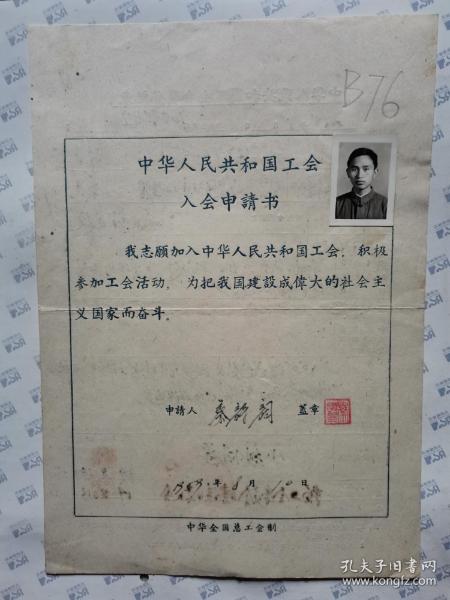 B76
中华人民共和国工会
入会申請书
我志願加入中华人民共和国工会，积极
参加工会活动，为把我国建設成偉大的社会主
义国家而奋斗。
申請人 盖章
年 月 日
中华全国总工会制
孔夫子旧书网
www.kongfz.com